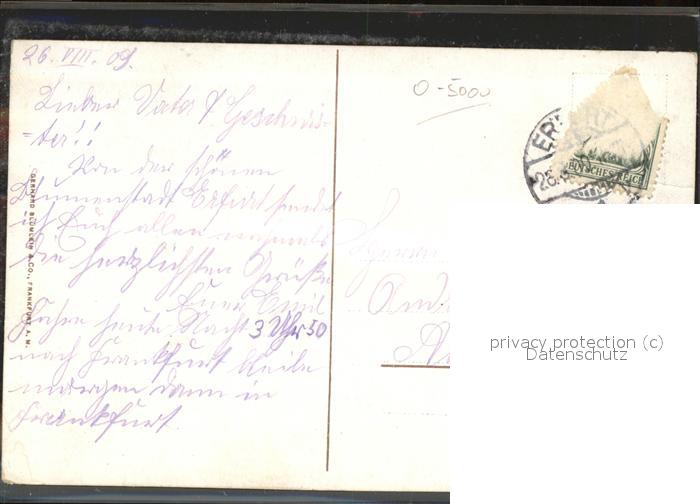 26. VIII. 09.
Lieber Vater & Geschwis-
=ter!!
Von der schönen
Blumenstadt Erfurt sendet
ich Euch allen nochmals
die herzlichsten Grüße
Euer Emil
Fahre heute Nacht 3 Uhr 50
nach Frankfurt bleibe
morgen dann in
Frankfurt.
GERHARD BLÜMLEIN & CO., FRANKFURT A. M.
0-5000
ERFURT
DEUTSCHES REICH
Herrn
privacy protection (c)
Datenschutz